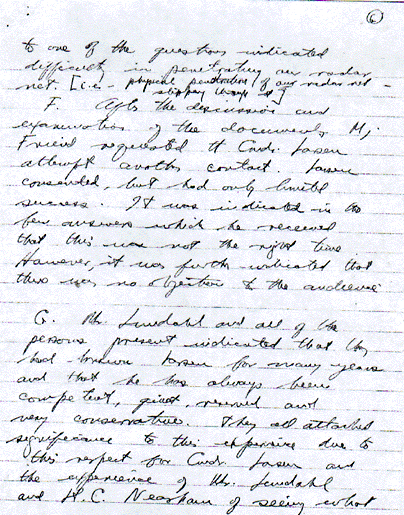 6
to one of the questions indicated
difficult in penetrating our radar
net. [i.e. - physical penetration of our radar net -
slipping through it]
F. After the discussion and
examination of the documents Mj
Friend requested Lt Cmdr. Larsen
attempt another contact. Larsen
consented, but had only limited
success. It was indicated in the
few answers which he received
that this was not the right time
However, it was further indicated that
there was no objection to the audience
G. Mr. Lundahl and all of the
persons present indicated that they
had known Larsen for many years
and that he has always been
competent, quiet, reserved and
very conservative. They all attached
significance to this experience due to
this respect for Cmdr. Larsen and
the experience of Mr. Lundahl
and H.C. Neasham of seeing what